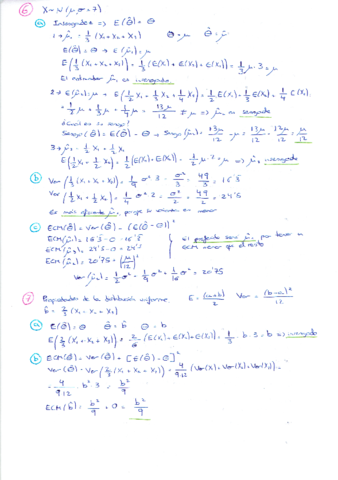 ⑥ X → N(μ, σ=7)
ⓐ Insesgados => E(θ̂) = θ
1→ μ̂₁ = 1/3 (X₁ + X₂ + X₃) θ = μ θ̂ : μ̂
E(θ̂) = θ → E(μ̂₁) = μ
E(1/3 (X₁ + X₂ + X₃)) = 1/3 (E(X₁) + E(X₂) + E(X₃)) = 1/3 μ · 3 = μ
El estimador μ̂₁ es insesgado
2→ E(μ̂₂) = μ → E(1/2 X₁ + 1/3 X₂ + 1/4 X₃) = 1/2 E(X₁) + 1/3 E(X₂) + 1/4 E(X₃)
= 1/2 μ + 1/3 μ + 1/4 μ = 13μ/12 ≠ μ => μ̂₂ es sesgado
¿Cuál es su sesgo?
Sesgo(θ̂) = E(θ̂) - θ → Sesgo(μ̂₂) = 13μ/12 - μ = 13μ/12 - 12μ/12 = μ/12
3→ μ̂₃ = 1/2 X₁ + 1/2 X₂
E(1/2 X₁ + 1/2 X₂) = 1/2 (E(X₁) + E(X₂)) = 1/2 μ · 2 = μ => μ̂₃ insesgado
ⓑ Var(1/3 (X₁ + X₂ + X₃)) = 1/9 σ² 3 = σ²/3 = 49/3 = 16'3
Var(1/2 X₁ + 1/2 X₂) = 1/4 σ² 2 = σ²/2 = 49/2 = 24'5
Es más eficiente μ̂₁ porque la varianza es menor
ⓒ ECM(θ̂) = Var(θ̂) + [E(θ̂) - θ]²
ECM(μ̂₁) = 16'3 + 0 = 16'3
ECM(μ̂₃) = 24'5 + 0 = 24'5
ECM(μ̂₂) = 20'75 + (μ/12)²
El preferido será μ̂₁ por tener un ECM menor que el resto
Var(μ̂₂) = 1/2 σ² + 1/9 σ² + 1/16 σ² = 20'75
⑦ Propiedades de la distribución uniforme. E = (a+b)/2 Var = (b-a)²/12
b̂ = 2/3 (X₁ + X₂ + X₃)
ⓐ E(θ̂) = θ θ̂ = b̂ θ : b
E(2/3 (X₁ + X₂ + X₃)) = 2/6 (E(X₁) + E(X₂) + E(X₃)) = 1/3 · b · 3 = b => insesgado
ⓑ ECM(θ̂) = Var(θ̂) + [E(θ̂) - θ]²
Var(θ̂) = Var(2/3 (X₁ + X₂ + X₃)) = 4/9·12 (Var(X₁) + Var(X₂) + Var(X₃)) =
= 4/9·12 · b² 3 = b²/9
ECM(b̂) = b²/9 + 0 = b²/9